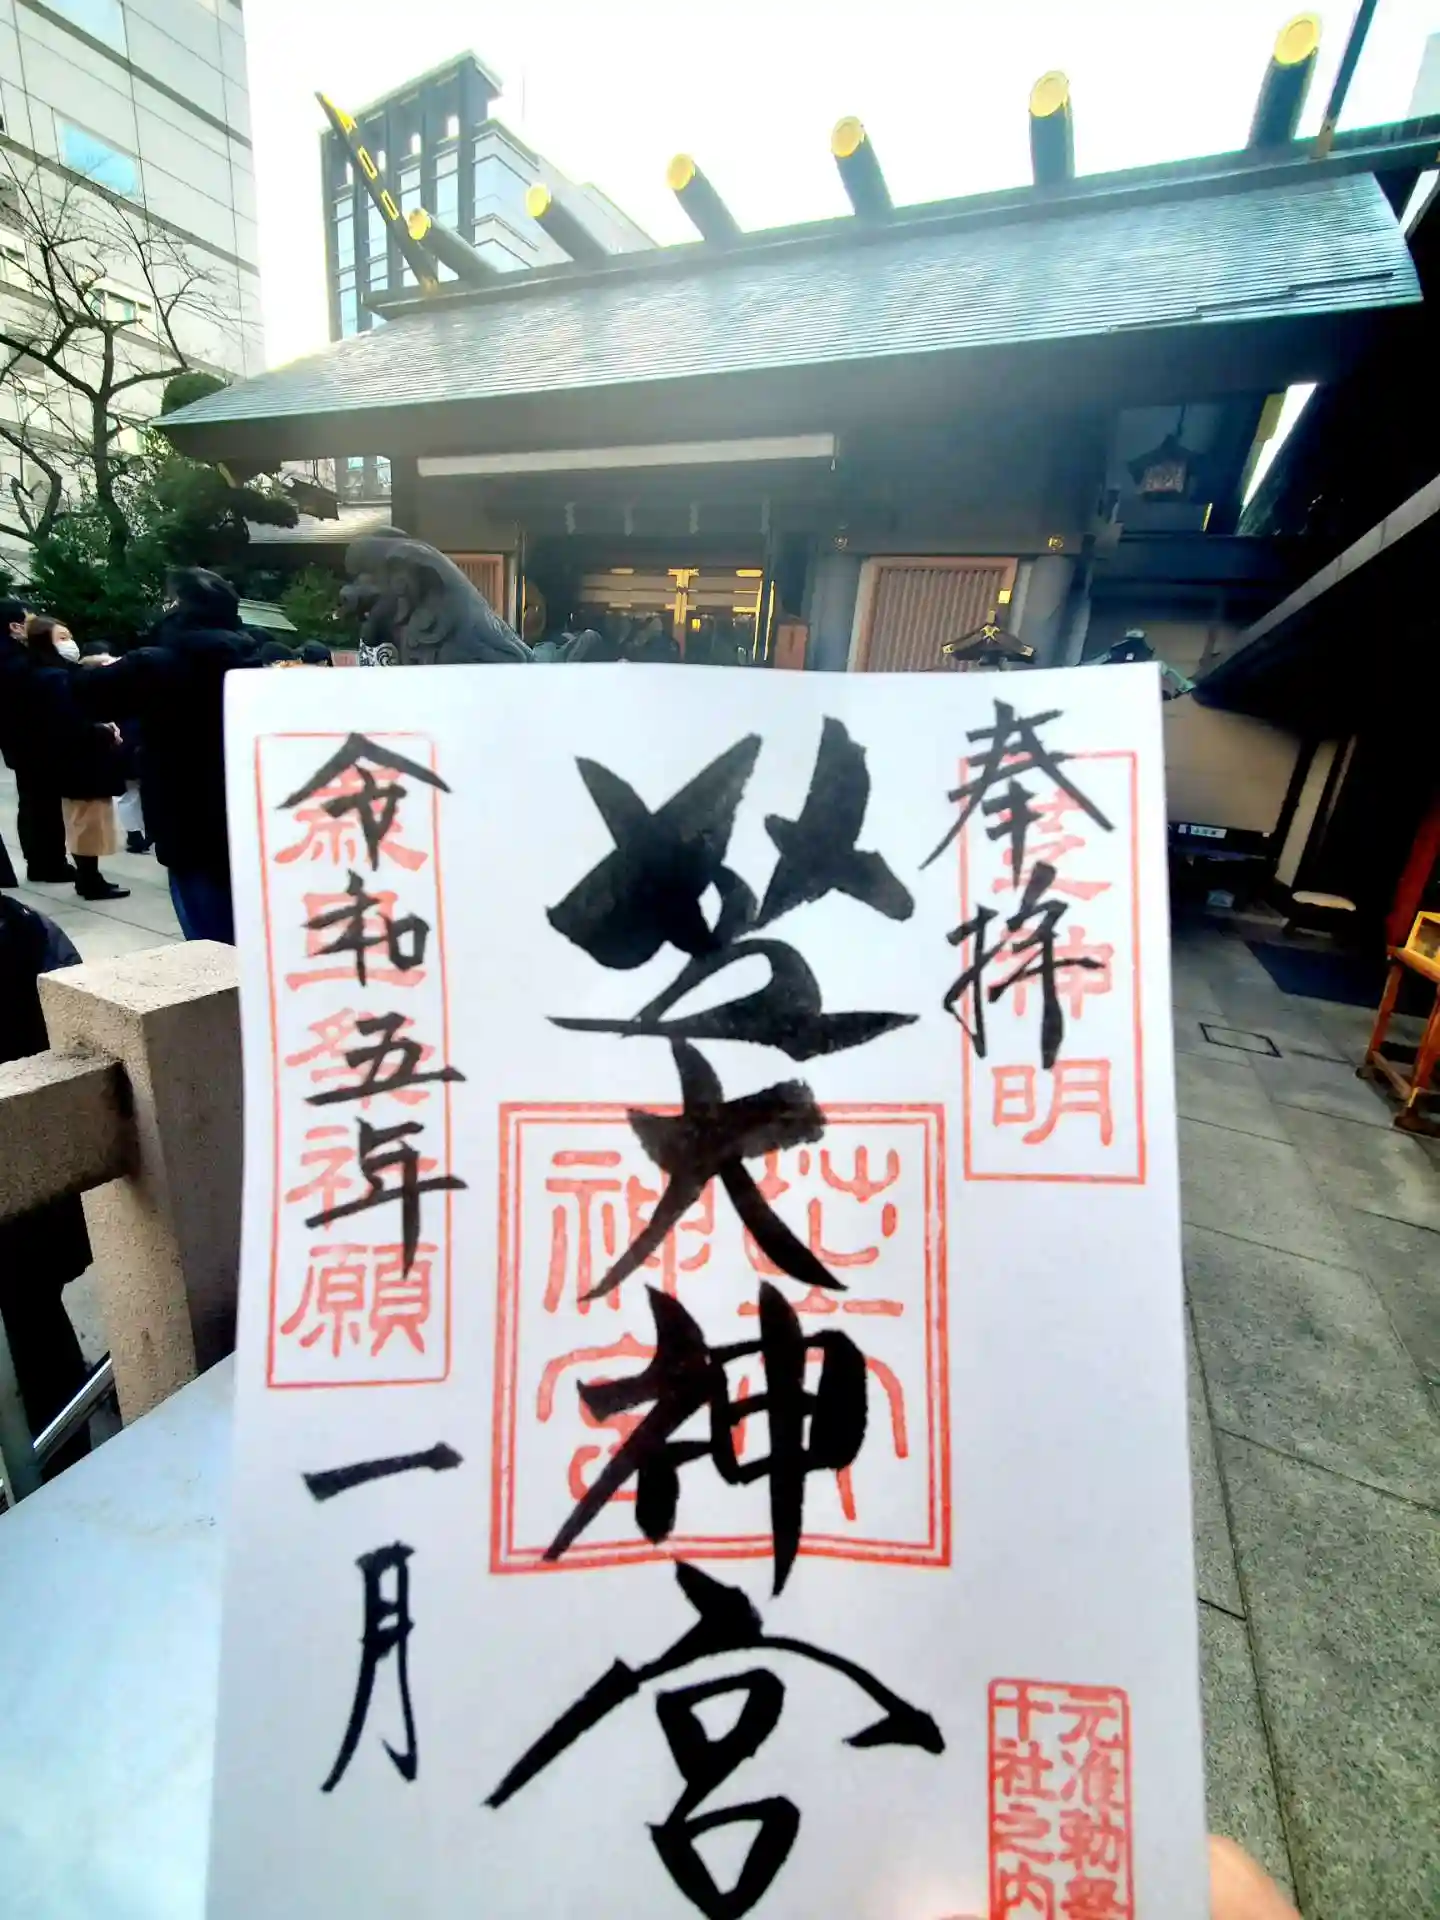 奉拝
芝神明
芝大神宮
芝大
神宮
元准勅祭
十社之内
令和五年 一月
祈願